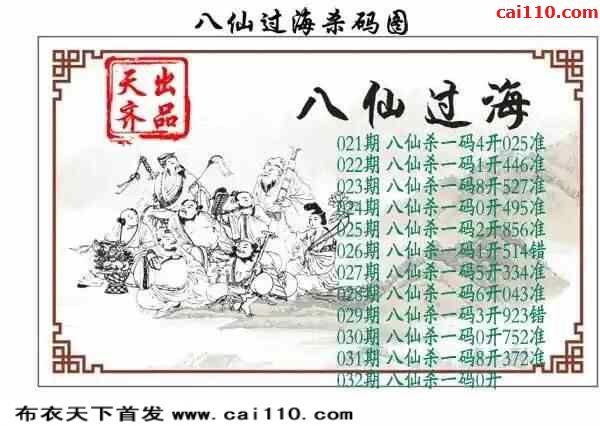 八仙过海杀码图
cai110.com
天齐出品
八仙过海
021期 八仙杀一码4开025准
022期 八仙杀一码1开446准
023期 八仙杀一码8开527准
024期 八仙杀一码0开495准
025期 八仙杀一码2开856准
026期 八仙杀一码1开514错
027期 八仙杀一码5开334准
028期 八仙杀一码6开043准
029期 八仙杀一码3开923错
030期 八仙杀一码0开752准
031期 八仙杀一码8开372准
032期 八仙杀一码0开
布衣天下首发 www.cai110.com